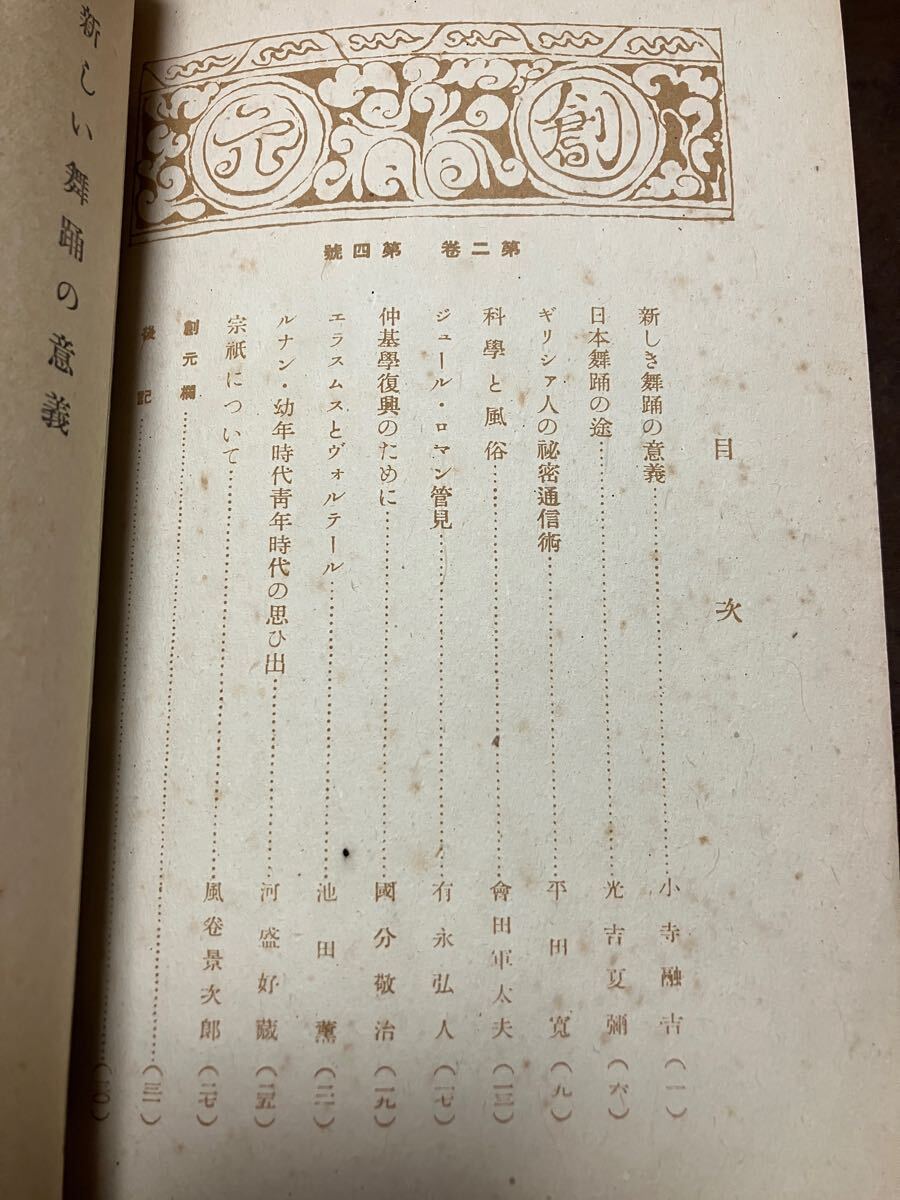 創元
第二卷 第四號
目次
新しき舞踊の意義 小寺融吉 (一)
日本舞踊の途 光吉夏彌 (六)
ギリシァ人の祕密通信術 平田寛 (九)
科學と風俗 會田軍太夫 (一三)
ジュール・ロマン管見 有永弘人 (一七)
仲基學復興のために 國分敬治 (一九)
エラスムスとヴォルテール 池田薰 (二一)
ルナン・幼年時代靑年時代の思ひ出 河盛好藏 (二五)
宗祇について 風卷景次郎 (二七)
創元欄 (三一)
後記
新しい舞踊の意義